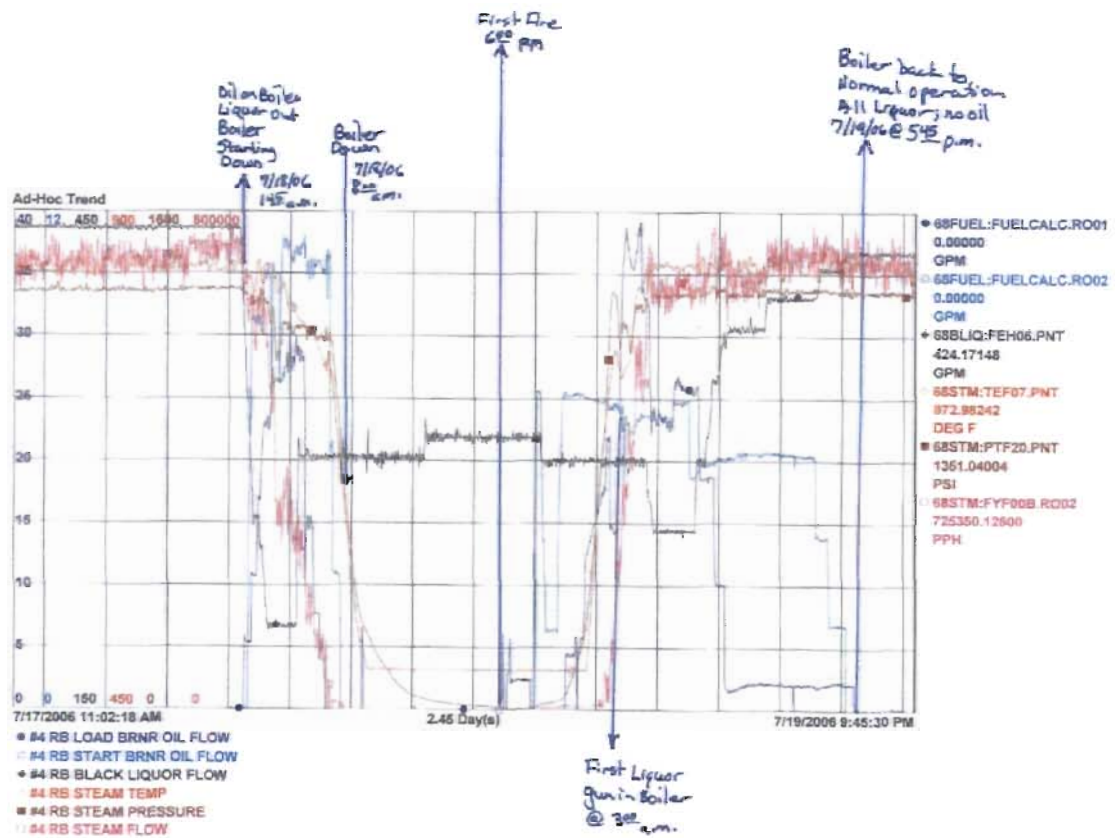 First Fire
6:00 PM
Oil on Boiler
Liquor Out
Boiler
Starting
Down
7/18/06
1:45 a.m.
Boiler
Down
7/18/06
8:00 a.m.
Boiler back to
Normal operation
All Liquor; no oil
7/19/06 @ 5:45 p.m.
Ad-Hoc Trend
40 12 450 900 1600 800000
35
30
25
20
15
10
5
0 0 150 450 0 0
7/17/2006 11:02:18 AM
2.45 Day(s)
7/19/2006 9:45:30 PM
68FUEL:FUELCALC.RO01
0.00000
GPM
68FUEL:FUELCALC.RO02
0.00000
GPM
68BLIQ:FEH06.PNT
424.17148
GPM
68STM:TEF07.PNT
872.98242
DEG F
68STM:PTF20.PNT
1351.04004
PSI
68STM:FYF00B.RO02
725350.12500
PPH
#4 RB LOAD BRNR OIL FLOW
#4 RB START BRNR OIL FLOW
#4 RB BLACK LIQUOR FLOW
#4 RB STEAM TEMP
#4 RB STEAM PRESSURE
#4 RB STEAM FLOW
First Liquor
gun in Boiler
@ 3:00 a.m.